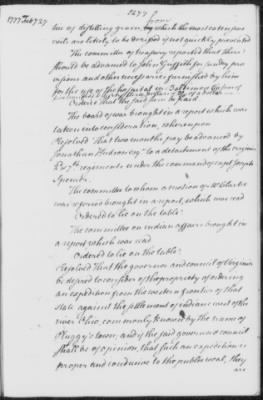 1777 Feb 27
from
ties of distilling grain, by which the most
evils are likely to be if not quickly prevented
The committee of treasury reported that there
should be advanced to John Griffith for sundry pro
visions and other necessaries furnished by him
for the use of the hospital in Baltimore
Ordered That the said sum be paid.
The board of war brought in a report which was
taken into consideration whereupon
Resolved That two months pay be advanced by
Jonathan Hudson esqr to a detachment of the virginia
& 7th regiments under the command of capt Joseph
The committee to whom a motion of was
was referred brought in a report, which was read
Ordered to lie on the table.
The committee on indian affairs brought in
a report which was read
Ordered to lie on the table.
Resolved That the governor and council of Virginia
be desired to consider of the propriety of ordering
an expedition from the western frontier of that
state against the settlement of indians west of the
river Ohio commonly known by the name of
Pluggy's town; and if the said governor & council
shall be of opinion, that such an expedition is
proper and conducive to the public weal, they
are